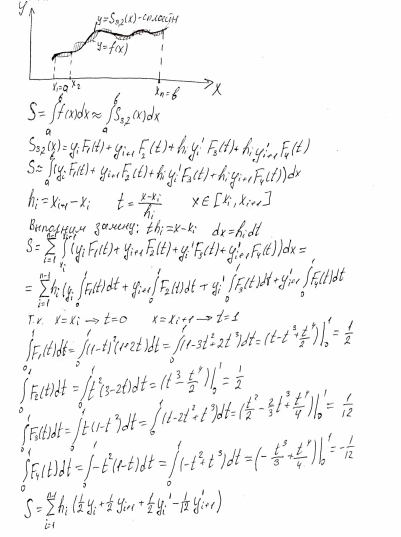 y
y=S₃,₂(x)-сплайн
y=f(x)
x₁=a x₂ xₙ=b x
S=∫ₐᵇf(x)dx≈∫ₐᵇS₃,₂(x)dx
S₃,₂(x)=yᵢF₁(t)+yᵢ₊₁F₂(t)+hᵢyᵢ'F₃(t)+hᵢyᵢ₊₁'F₄(t)
S≈∫ₐᵇ(yᵢF₁(t)+yᵢ₊₁F₂(t)+hᵢyᵢ'F₃(t)+hᵢyᵢ₊₁'F₄(t))dx
hᵢ=xᵢ₊₁-xᵢ t=(x-xᵢ)/hᵢ x∈[xᵢ,xᵢ₊₁]
Выполним замену: thᵢ=x-xᵢ dx=hᵢdt
S=∑ᵢ₌₁ⁿ⁻¹∫(yᵢF₁(t)+yᵢ₊₁F₂(t)+yᵢ'F₃(t)+yᵢ₊₁'F₄(t))dx=
=∑ᵢ₌₁ⁿ⁻¹hᵢ(yᵢ∫₀¹F₁(t)dt+yᵢ₊₁∫₀¹F₂(t)dt+yᵢ'∫₀¹F₃(t)dt+yᵢ₊₁'∫₀¹F₄(t)dt
Т.к. x=xᵢ→t=0 x=xᵢ₊₁→t=1
∫₀¹F₁(t)dt=∫₀¹(1-t)²(1+2t)dt=∫₀¹(1-3t²+2t³)dt=(t-t³+t⁴/2)|₀¹=1/2
∫₀¹F₂(t)dt=∫₀¹t²(3-2t)dt=(t³-t⁴/2)|₀¹=1/2
∫₀¹F₃(t)dt=∫₀¹t(1-t²)dt=∫₀¹(t-2t²+t³)dt=(t²/2-2/3t³+t⁴/4)|₀¹=1/12
∫₀¹F₄(t)dt=∫₀¹-t²(1-t)dt=∫₀¹(-t²+t³)dt=(-t³/3+t⁴/4)|₀¹=-1/12
S=∑ᵢ₌₁ⁿ⁻¹hᵢ(1/2yᵢ+1/2yᵢ₊₁+1/2yᵢ'-1/12yᵢ₊₁')